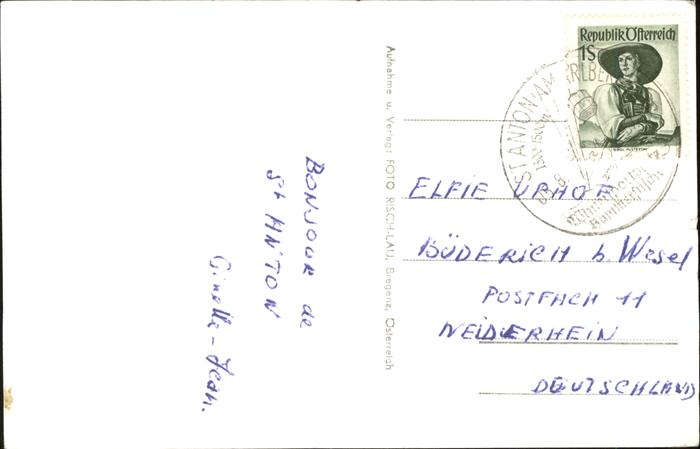 BONJOUR de
St ANTON
Ginette - Jean.
Aufnahme u. Verlag: FOTO RISCH-LAU, Bregenz, Österreich
Republik Österreich
1S
ST ANTON AM ARLBERG
ELFIE UPHOF
BÜDERICH b. Wesel
POSTFACH 11
NEIDERHEIN
DEUTSCHLAND